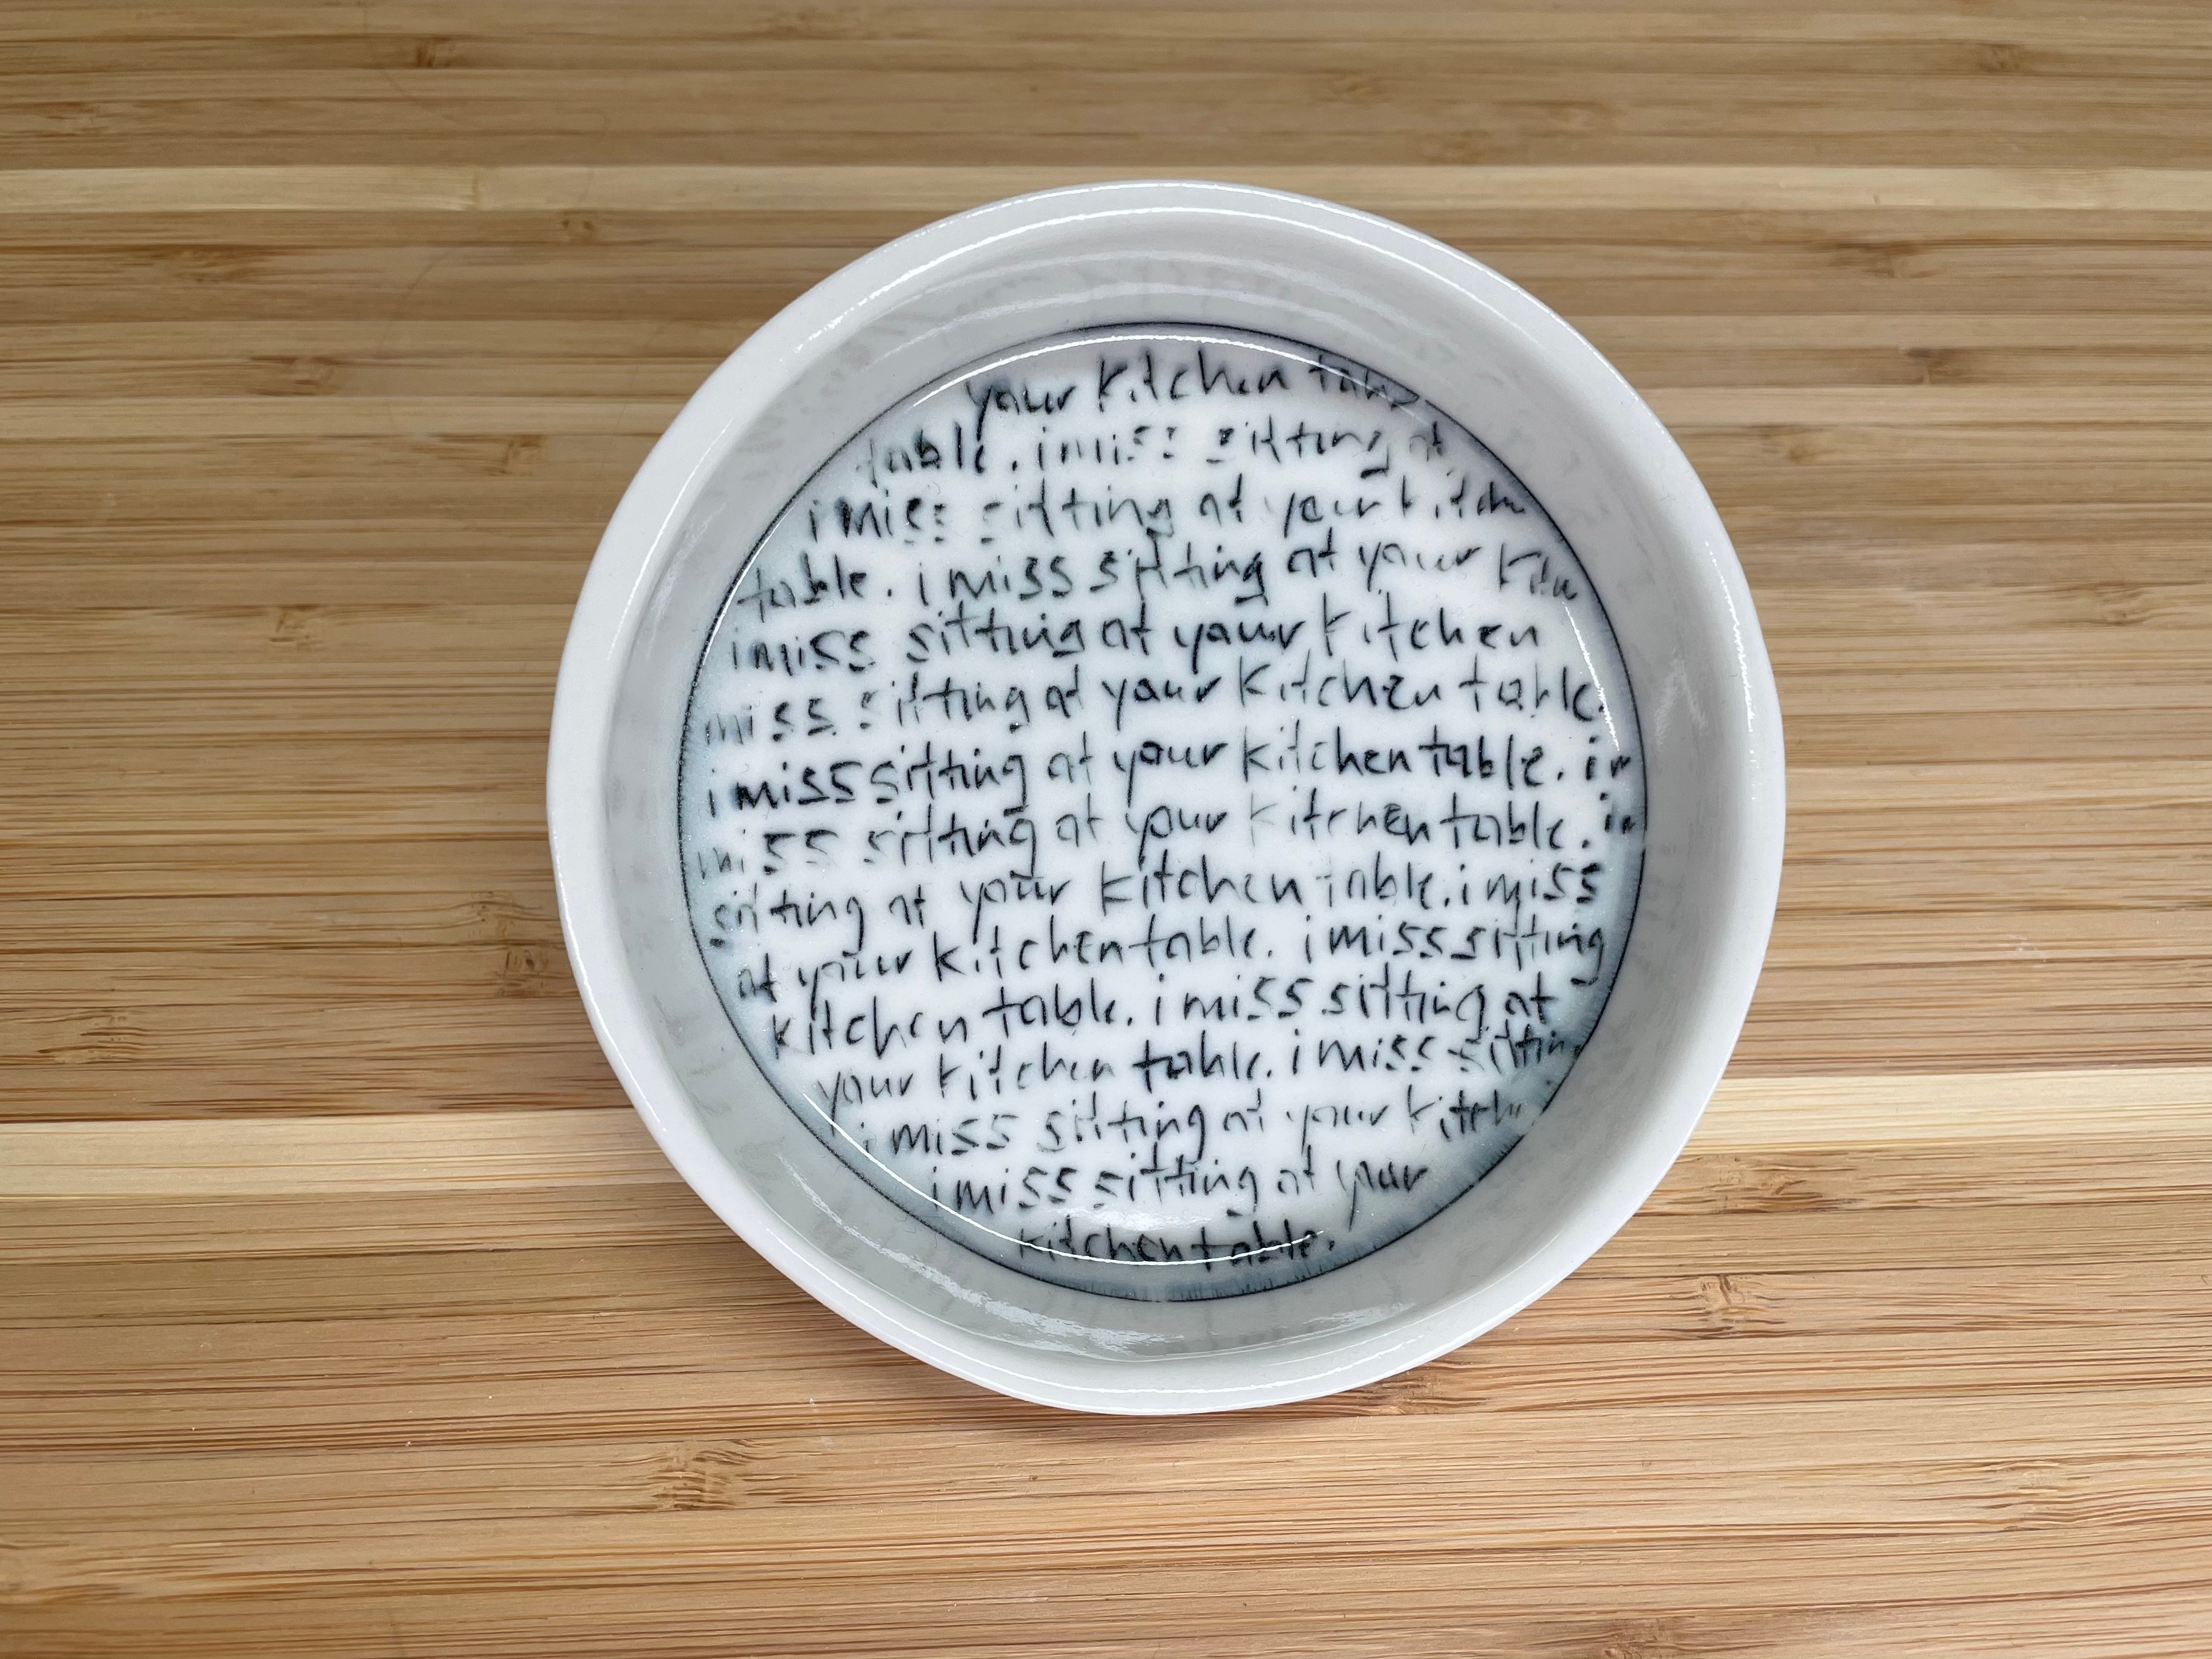 your kitchen tab
table. i miss sitting at
i miss sitting at your kitche
table. i miss sitting at your kitc
i miss sitting at your kitchen
miss sitting at your kitchen table.
i miss sitting at your kitchen table. i m
miss sitting at your kitchen table. i
sitting at your kitchen table. i miss
at your kitchen table. i miss sitting
kitchen table. i miss sitting at
your kitchen table. i miss sitting
i miss sitting at your kitch
i miss sitting at your
kitchen table.